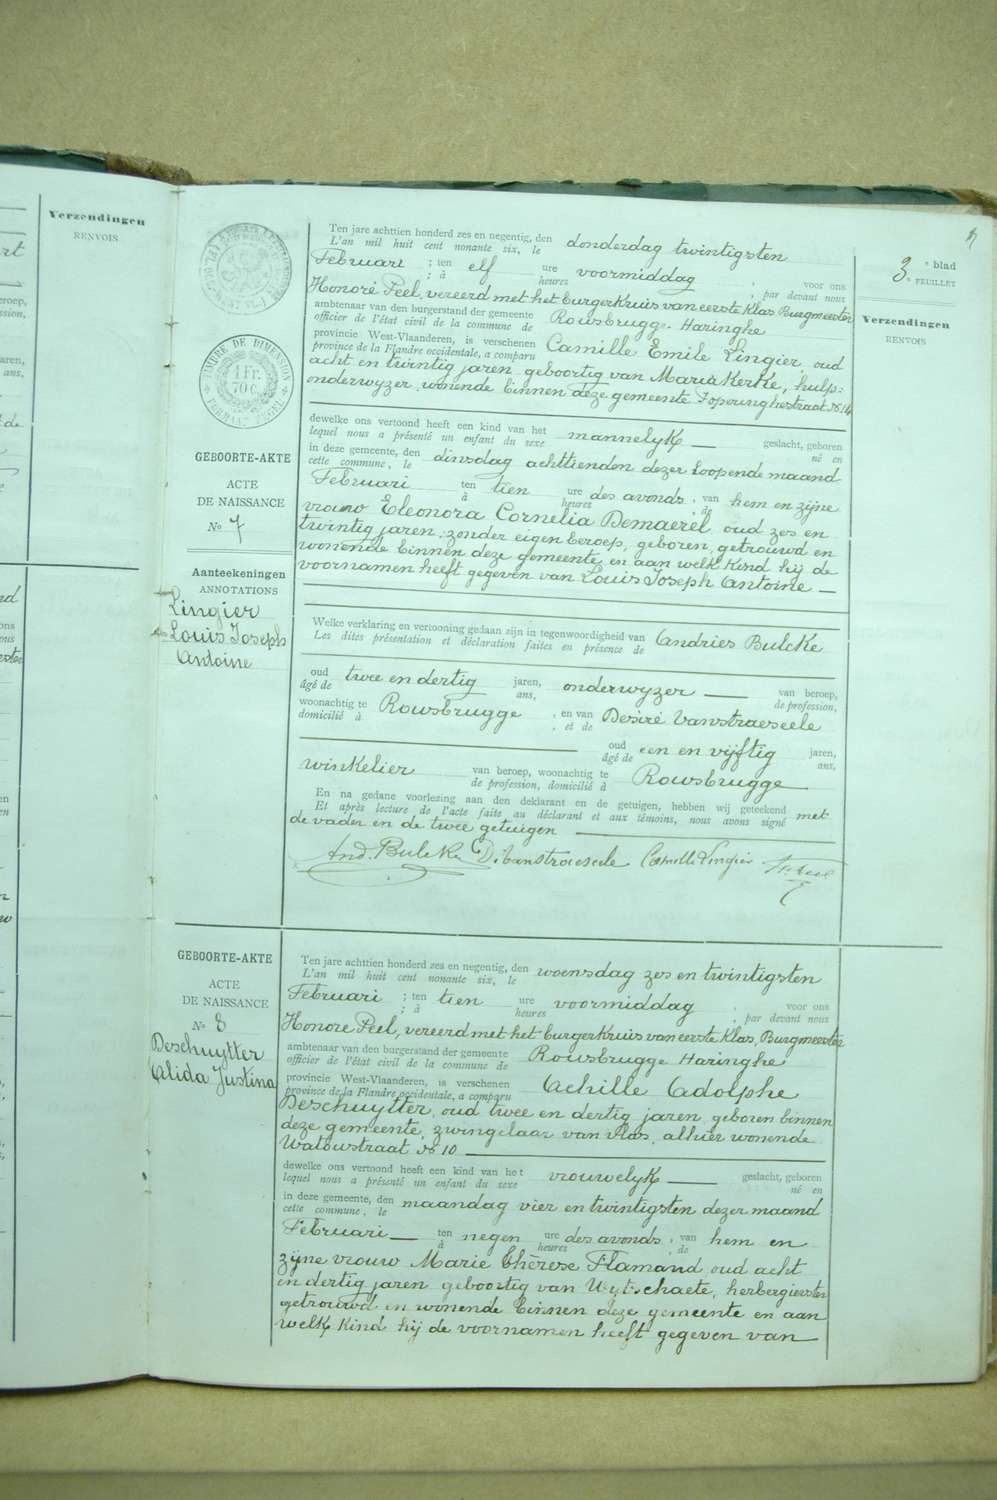 Verzendingen
RENVOIS
3e blad
e FEUILLET
Verzendingen
RENVOIS
TIMBRE DE DIMENSION
1 Fr.
70 c.
GEBOORTE-AKTE
ACTE
DE NAISSANCE
No 7
Aanteekeningen
ANNOTATIONS
Lingier
Louis Joseph
Antoine
Ten jare achttien honderd zes en negentig, den donderdag twintigsten
L'an mil huit cent nonante six, le
Februari ; ten elf ure voormiddag , voor ons
; à heures , par devant nous
Honoré Peel, vereerd met het burgerkruis van eerste Klas, Burgmeester
ambtenaar van den burgerstand der gemeente Rousbrugge-Haringhe
officier de l'état civil de la commune de
provincie West-Vlaanderen, is verschenen Camille Emile Lingier, oud
province de la Flandre occidentale, a comparu
acht en twintig jaren geboortig van Mariakerke, hulp=
onderwyzer, wonende binnen deze gemeente Poperinghestraat No 14
dewelke ons vertoond heeft een kind van het mannelyk geslacht, geboren
lequel nous a présenté un enfant du sexe né en
in deze gemeente, den dinsdag achttienden dezer loopende maand
cette commune, le
Februari ten tien ure des avonds , van hem en zijne
à heures , de
vrouw Eleonora Cornelia Demaerel oud zes en
twintig jaren, zonder eigen beroep, geboren, getrouwd en
wonende binnen deze gemeente, en aan welk kind hij de
voornamen heeft gegeven van Louis Joseph Antoine
Welke verklaring en vertooning gedaan zijn in tegenwoordigheid van Andries Bulcke
Les dites présentation et déclaration faites en présence de
oud twee en dertig jaren, onderwyzer van beroep,
âgé de ans, de profession,
woonachtig te Rousbrugge , en van Desiré Vanstraeseele
domicilié à , et de
oud een en vijftig jaren,
âgé de ans,
winkelier van beroep, woonachtig te Rousbrugge
de profession, domicilié à
En na gedane voorlezing aan den deklarant en de getuigen, hebben wij geteekend met
Et après lecture de l'acte faite au déclarant et aux témoins, nous avons signé
de vader en de twee getuigen
And. Bulcke D. Vanstraeseele Camille Lingier H. Peel
GEBOORTE-AKTE
ACTE
DE NAISSANCE
No 8
Deschuytter
Alida Justina
Ten jare achttien honderd zes en negentig, den woensdag zes en twintigsten
L'an mil huit cent nonante six, le
Februari ; ten tien ure voormiddag , voor ons
; à heures , par devant nous
Honoré Peel, vereerd met het burgerkruis van eerste Klas, Burgmeester
ambtenaar van den burgerstand der gemeente Rousbrugge Haringhe
officier de l'état civil de la commune de
provincie West-Vlaanderen, is verschenen Achille Adolphe
province de la Flandre occidentale, a comparu
Deschuytter, oud twee en dertig jaren geboren binnen
deze gemeente, zwingelaar van vlas, alhier wonende
Watoustraat No 10
dewelke ons vertoond heeft een kind van het vrouwelyk geslacht, geboren
lequel nous a présenté un enfant du sexe né en
in deze gemeente, den maandag vier en twintigsten dezer maand
cette commune, le
Februari ten negen ure des avonds , van hem en
à heures , de
zijne vrouw Marie Thérese Flamand oud acht
en dertig jaren geboortig van Wytschaete, herbergierster
getrouwd en wonende binnen deze gemeente en aan
welk kind hij de voornamen heeft gegeven van